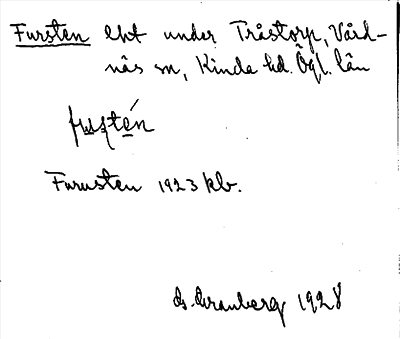 Fursten lht under Tråstorp, Vård-
näs sn, Kinda hd. Ögl. län
fuṣtén
Furusten 1923 kb.
G. Granberg 1928